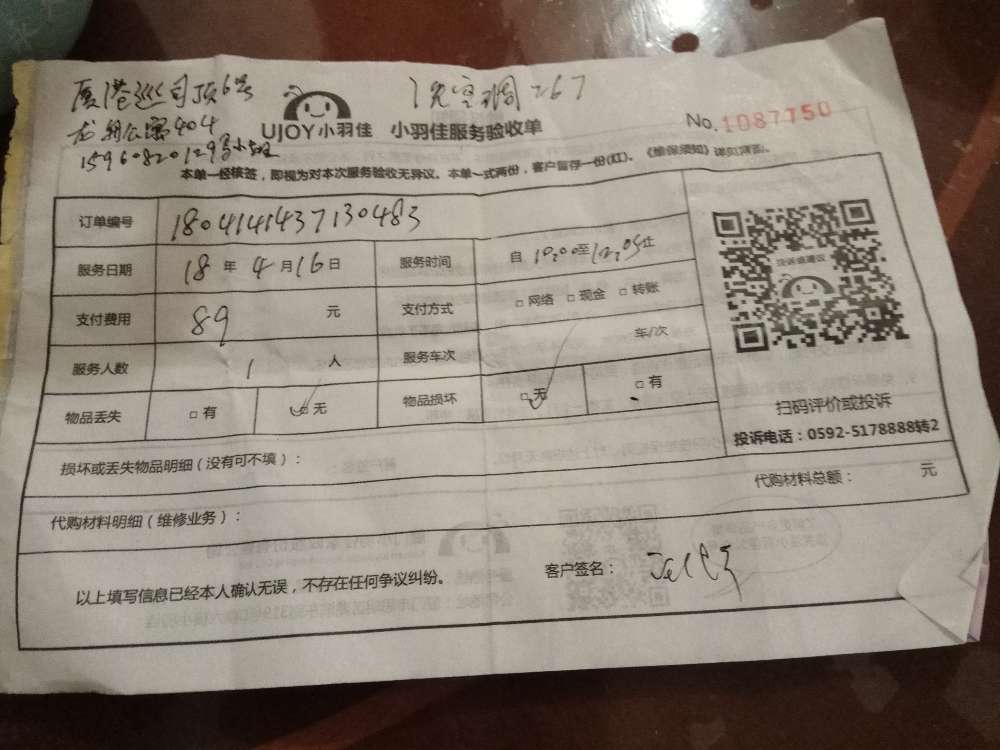 厦港巡司顶6号 洗空调267
公寓404
UJOY小羽佳 小羽佳服务验收单 No.1087750
本单一经核签，即视为对本次服务验收无异议。本单一式两份，客户留存一份(红)。《维保须知》详见背面。
订单编号 180414143713 0483
服务日期 18 年 4 月 16 日 服务时间 自 10:00 至 12:05 止
支付费用 89 元 支付方式 □ 网络 □ 现金 □ 转账
服务人数 1 人 服务车次 车/次
物品丢失 □ 有 □ 无 物品损坏 □ 无 □ 有
投诉或建议
扫码评价或投诉
投诉电话：0592-5178888转2
损坏或丢失物品明细（没有可不填）：
代购材料明细（维修业务）： 代购材料总额： 元
以上填写信息已经本人确认无误，不存在任何争议纠纷。 客户签名：